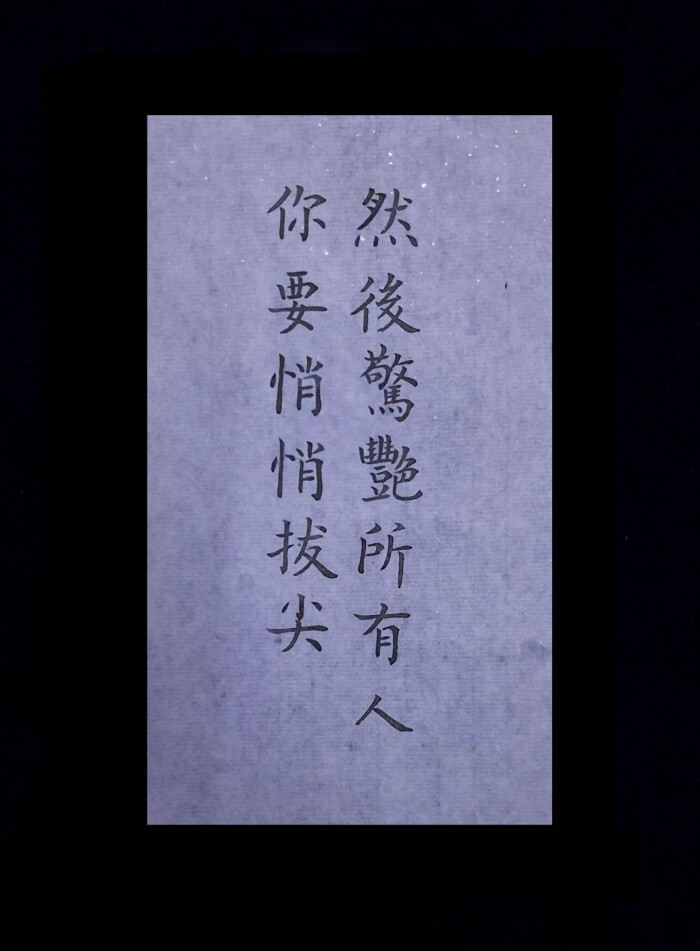 你要悄悄拔尖
然後驚艷所有人